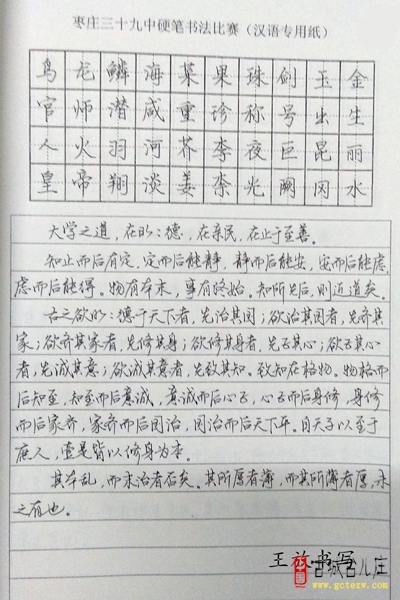 枣庄三十九中硬笔书法比赛（汉语专用纸）
鸟龙鳞海菜果珠剑玉金
官师潜咸重珍称号出生
人火羽河芥李夜巨昆丽
皇帝翔淡姜柰光阙冈水
大学之道，在明明德，在亲民，在止于至善。
知止而后有定，定而后能静，静而后能安，安而后能虑，
虑而后能得。物有本末，事有终始。知所先后，则近道矣。
古之欲明明德于天下者，先治其国；欲治其国者，先齐其
家；欲齐其家者，先修其身；欲修其身者，先正其心；欲正其心
者，先诚其意；欲诚其意者，先致其知。致知在格物。物格而
后知至，知至而后意诚，意诚而后心正，心正而后身修，身修
而后家齐，家齐而后国治，国治而后天下平。自天子以至于
庶人，壹是皆以修身为本。
其本乱，而末治者否矣。其所厚者薄，而其所薄者厚，未
之有也。
王 书写
古城台儿庄
www.gctezw.com